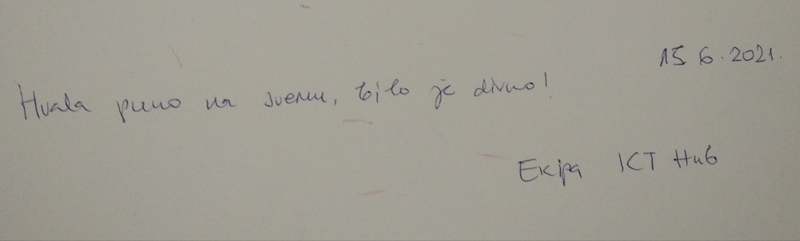 15 6.2021.
Hvala puno na svemu, bilo je divno!
Ekipa ICT Hub